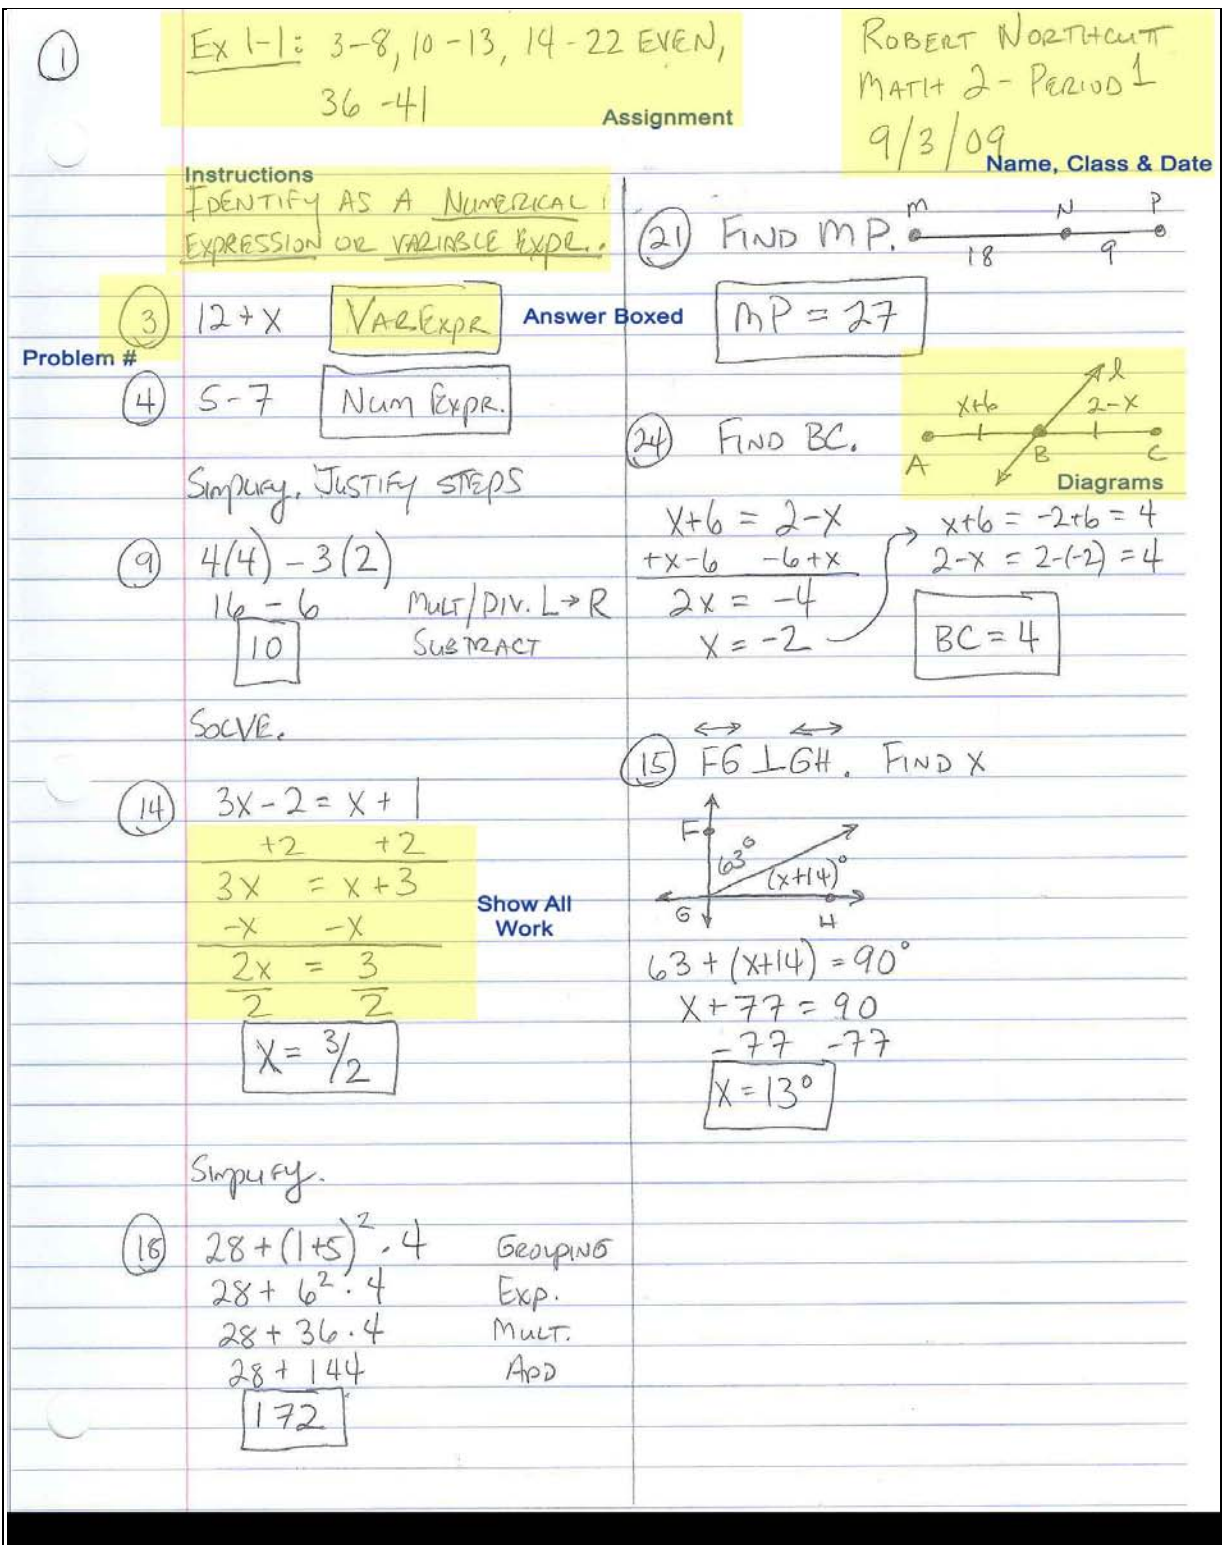 1
Ex 1-1: 3-8, 10-13, 14-22 EVEN,
36-41
Assignment
ROBERT NORTHCUTT
MATH 2 - PERIOD 1
9/3/09
Name, Class & Date
Instructions
IDENTIFY AS A NUMERICAL
EXPRESSION OR VARIABLE EXPR.
3 12+X VAR EXPR
Answer Boxed
Problem #
4 5-7 NUM EXPR.
SIMPLIFY. JUSTIFY STEPS
9 4(4)-3(2)
16-6 MULT/DIV. L→R
10 SUBTRACT
SOLVE.
14 3X-2=X+1
+2 +2
3X = X+3
-X -X
2X = 3
2 2
X = 3/2
Show All
Work
SIMPLIFY.
18 28+(1+5)²·4 GROUPING
28+6²·4 EXP.
28+36·4 MULT.
28+144 ADD
172
21 FIND MP.
M N P
18 9
MP = 27
24 FIND BC.
X+6 2-X l
A B C
Diagrams
X+6 = 2-X
+X-6 -6+X
2X = -4
X = -2
X+6 = -2+6 = 4
2-X = 2-(-2) = 4
BC = 4
15 FG ⊥ GH. FIND X
F
63° (X+14)°
G H
63+(X+14)=90°
X+77=90
-77 -77
X=13°